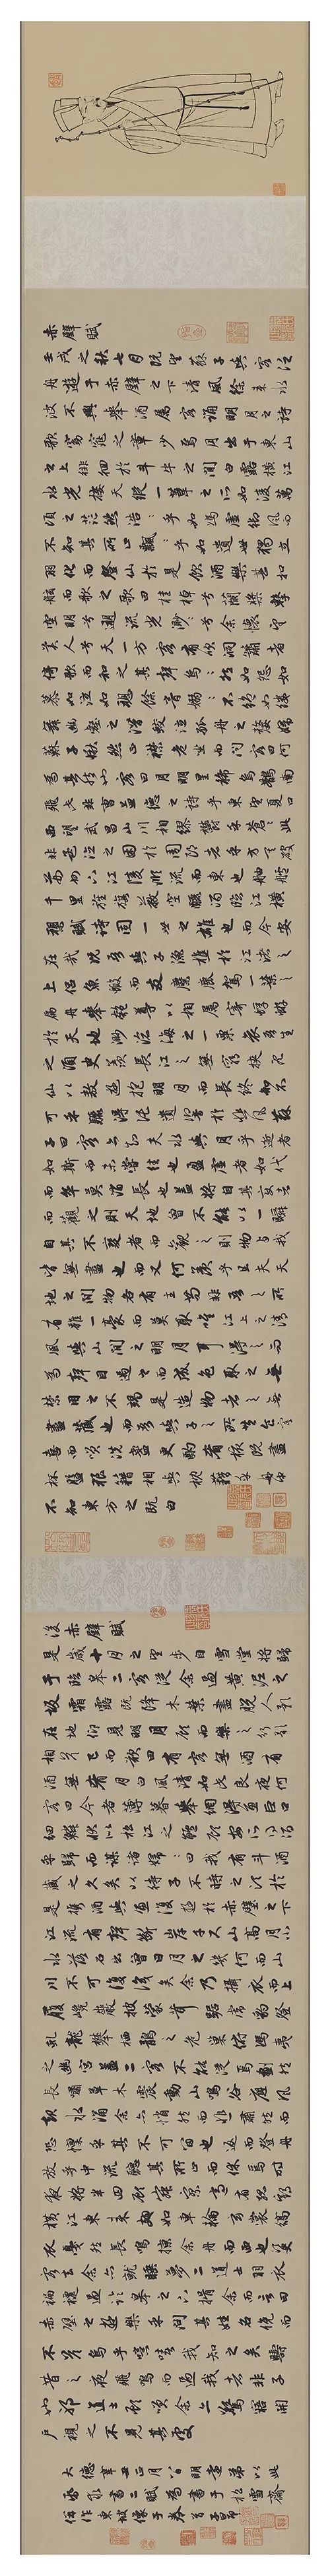 赤壁賦
壬戌之秋七月既望蘇子與客泛
舟遊于赤壁之下清風徐來水
波不興舉酒屬客誦明月之詩
歌窈窕之章少焉月出于東山
之上徘徊於斗牛之間白露橫江
水光接天縱一葦之所如凌萬
頃之茫然浩浩乎如馮虛御風而
不知其所止飄飄乎如遺世獨立
羽化而登仙於是飲酒樂甚扣
舷而歌之歌曰桂棹兮蘭槳擊
空明兮泝流光渺渺兮余懷望
美人兮天一方客有吹洞簫者
倚歌而和之其聲嗚嗚然如怨如
慕如泣如訴餘音嫋嫋不絕如縷
舞幽壑之潛蛟泣孤舟之嫠婦
蘇子愀然正襟危坐而問客曰何
為其然也客曰月明星稀烏鵲南
飛此非曹孟德之詩乎東望夏口
西望武昌山川相繆鬱乎蒼蒼此
非孟德之困於周郎者乎方其破
荊州下江陵順流而東也舳艫
千里旌旗蔽空釃酒臨江橫
槊賦詩固一世之雄也而今安
在哉況吾與子漁樵於江渚之
上侶魚蝦而友麋鹿駕一葉之
扁舟舉匏尊以相屬寄蜉蝣
於天地渺滄海之一粟哀吾生
之須臾羨長江之無窮挾飛
仙以遨遊抱明月而長終知不
可乎驟得託遺響於悲風蘇
子曰客亦知夫水與月乎逝者
如斯而未嘗往也盈虛者如代
而卒莫消長也蓋將自其變者
而觀之則天地曾不能以一瞬
自其不變者而觀之則物與我
皆無盡也而又何羨乎且夫天
地之間物各有主苟非吾之所
有雖一毫而莫取惟江上之清
風與山間之明月耳得之而
為聲目遇之而成色取之無
禁用之不竭是造物者之無
盡藏也而吾與子之所共食客
喜而笑洗盞更酌肴核既盡
杯盤狼籍相與枕藉乎舟中
不知東方之既白
後赤壁賦
是歲十月之望步自雪堂將歸
于臨皋二客從余過黃泥之
坂霜露既降木葉盡脫人影
在地仰見明月顧而樂之行歌
相答已而歎曰有客無酒有
酒無肴月白風清如此良夜何
客曰今者薄暮舉網得魚巨口
細鱗狀似松江之鱸顧安所得酒
乎歸而謀諸婦婦曰我有斗酒
藏之久矣以待子不時之須於
是攜酒與魚復遊於赤壁之下
江流有聲斷岸千尺山高月小
水落石出曾日月之幾何而江山
不可復識矣余乃攝衣而上
履巉巖披蒙茸踞虎豹登
虬龍攀棲鶻之危巢俯馮夷
之幽宮蓋二客不能從焉劃然
長嘯草木震動山鳴谷應風
起水涌余亦悄然而悲肅然而
恐凜乎其不可留也返而登舟
放乎中流聽其所止而休焉時
夜將半四顧寂寥適有孤鶴
橫江東來翅如車輪玄裳縞
衣戛然長鳴掠余舟而西也須臾
客去余亦就睡夢二道士羽衣
蹁躚過臨皋之下揖余而言曰
赤壁之遊樂乎問其姓名俛而
不答嗚乎噫嘻我知之矣疇
昔之夜飛鳴而過我者非子
也邪道士顧笑余亦驚寤開
戶視之不見其處
大德辛丑正月八日明遠弟以此
紙求書二賦為書于松雪齋
併作東坡像于卷首子昂